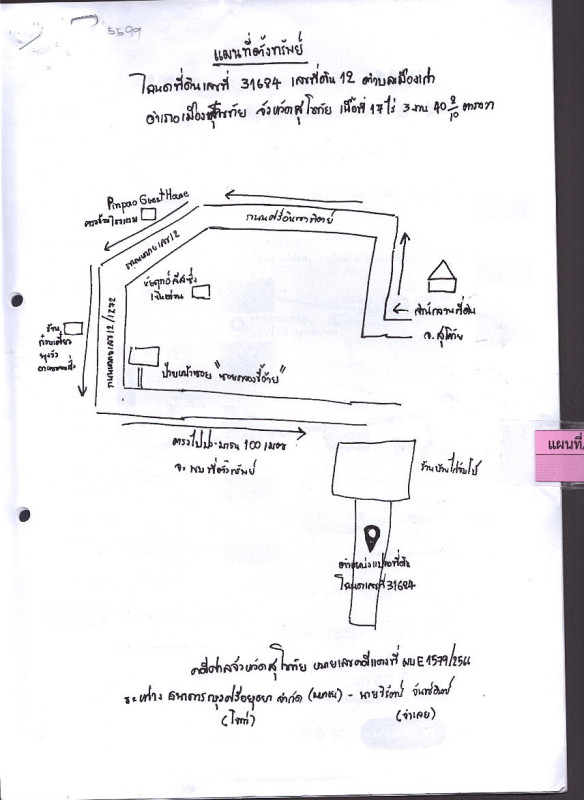 5599
แผนที่ตั้งทรัพย์
โฉนดที่ดินเลขที่ 31684 เลขที่ดิน 12 ตำบลเมืองเก่า
อำเภอเมืองสุโขทัย จังหวัดสุโขทัย เนื้อที่ 17 ไร่ 3 งาน 40 2/10 ตารางวา
Pinpao Guest House
ตรงข้ามโรงแรม
ถนนศรีอินทราทิตย์
ถนนหมายเลข 12
ชัยฤกธิ์ลีสซิ่ง
เงินด่วน
สำนักงานที่ดิน
จ.สุโขทัย
ร้าน
ก๋วยเตี๋ยว
ถนนหมายเลข 12/1272
ป้ายหน้าซอย "ซอยคลองขี้อ้าย"
ตรงไปประมาณ 100 เมตร
จะพบที่ตั้งทรัพย์
แผนที่
ตำแหน่งแปลงที่ดิน
โฉนดเลขที่ 31684
คดีศาลจังหวัดสุโขทัย หมายเลขคดีแดงที่ ผบE1579/2566
ระหว่าง ธนาคารกรุงศรีอยุธยา จำกัด (มหาชน) - นายวิรัตน์
(โจทก์) (จำเลย)